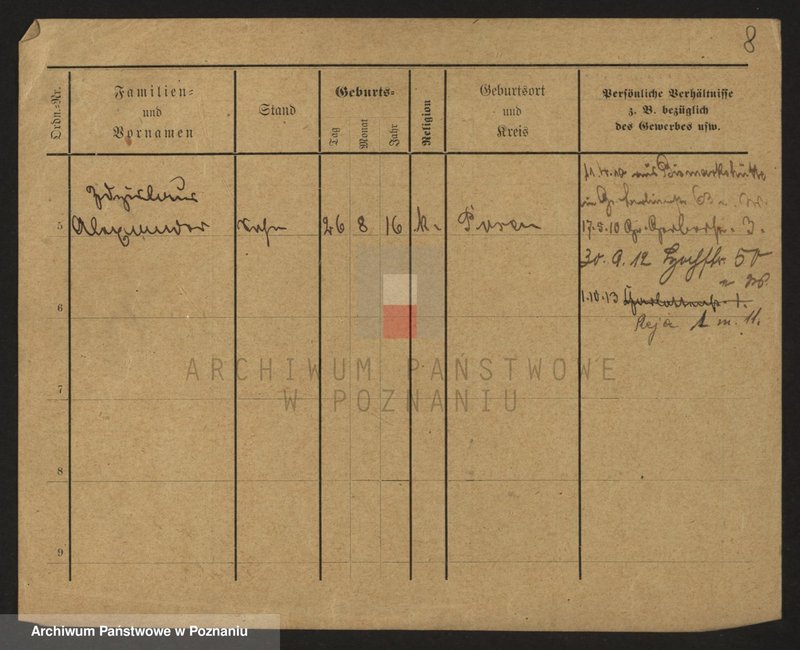 8
Ordn.-Nr.
Familien-
und
Vornamen
Stand
Geburts-
Tag
Monat
Jahr
Religion
Geburtsort
und
Kreis
Persönliche Verhältnisse
z. B. bezüglich
des Gewerbes usw.
Zdzislaus
5 Alexander Sohn 26 8 16 k. Posen
aus Bismarkshütte
in 63
17.8.10 Gr. Gerberstr. 3.
30.9.12 50
1.10.13 1.
Reja 1 m. 11.
6
7
8
9
ARCHIWUM PAŃSTWOWE
W POZNANIU
Archiwum Państwowe w Poznaniu